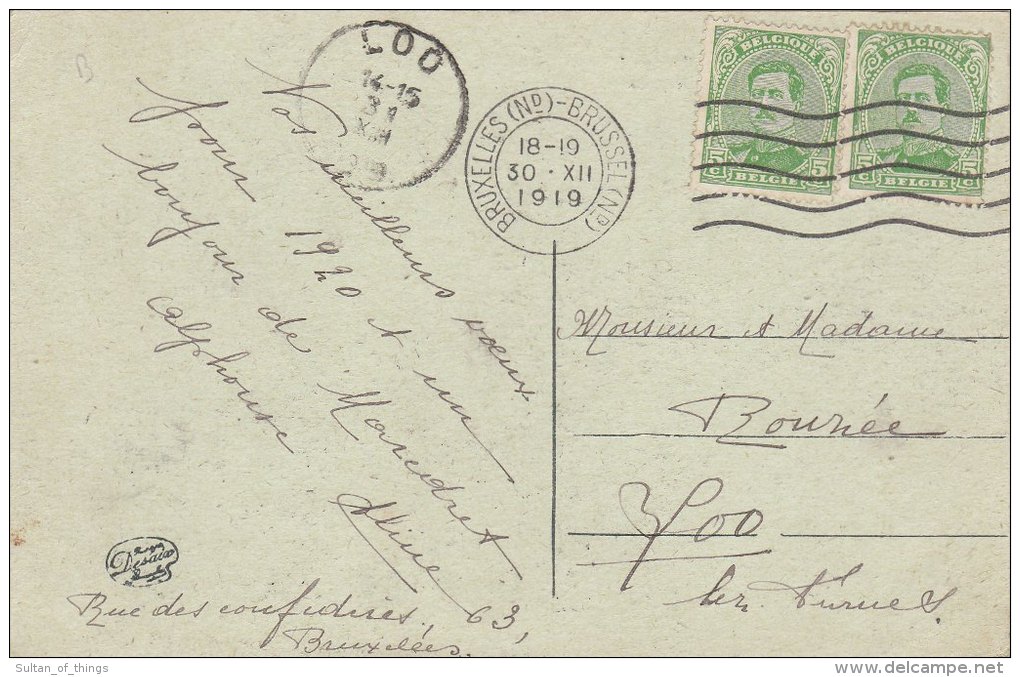 LOO
14-15
31
XII
BRUXELLES (ND)-BRUSSEL (NB)
18-19
30·XII
1919
BELGIQUE
5 C
5 C
BELGIE
BELGIQUE
5 C
5 C
BELGIE
Vos meilleurs voeux
pour 1920 & un
bonjour de Maredret
Alphonse
Aline
Rue des confédirés, 63,
Bruxelles.
Monsieur & Madame
Bourée
Loo
lez Furnes
Desaix
Sultan_of_things
delcampe.net